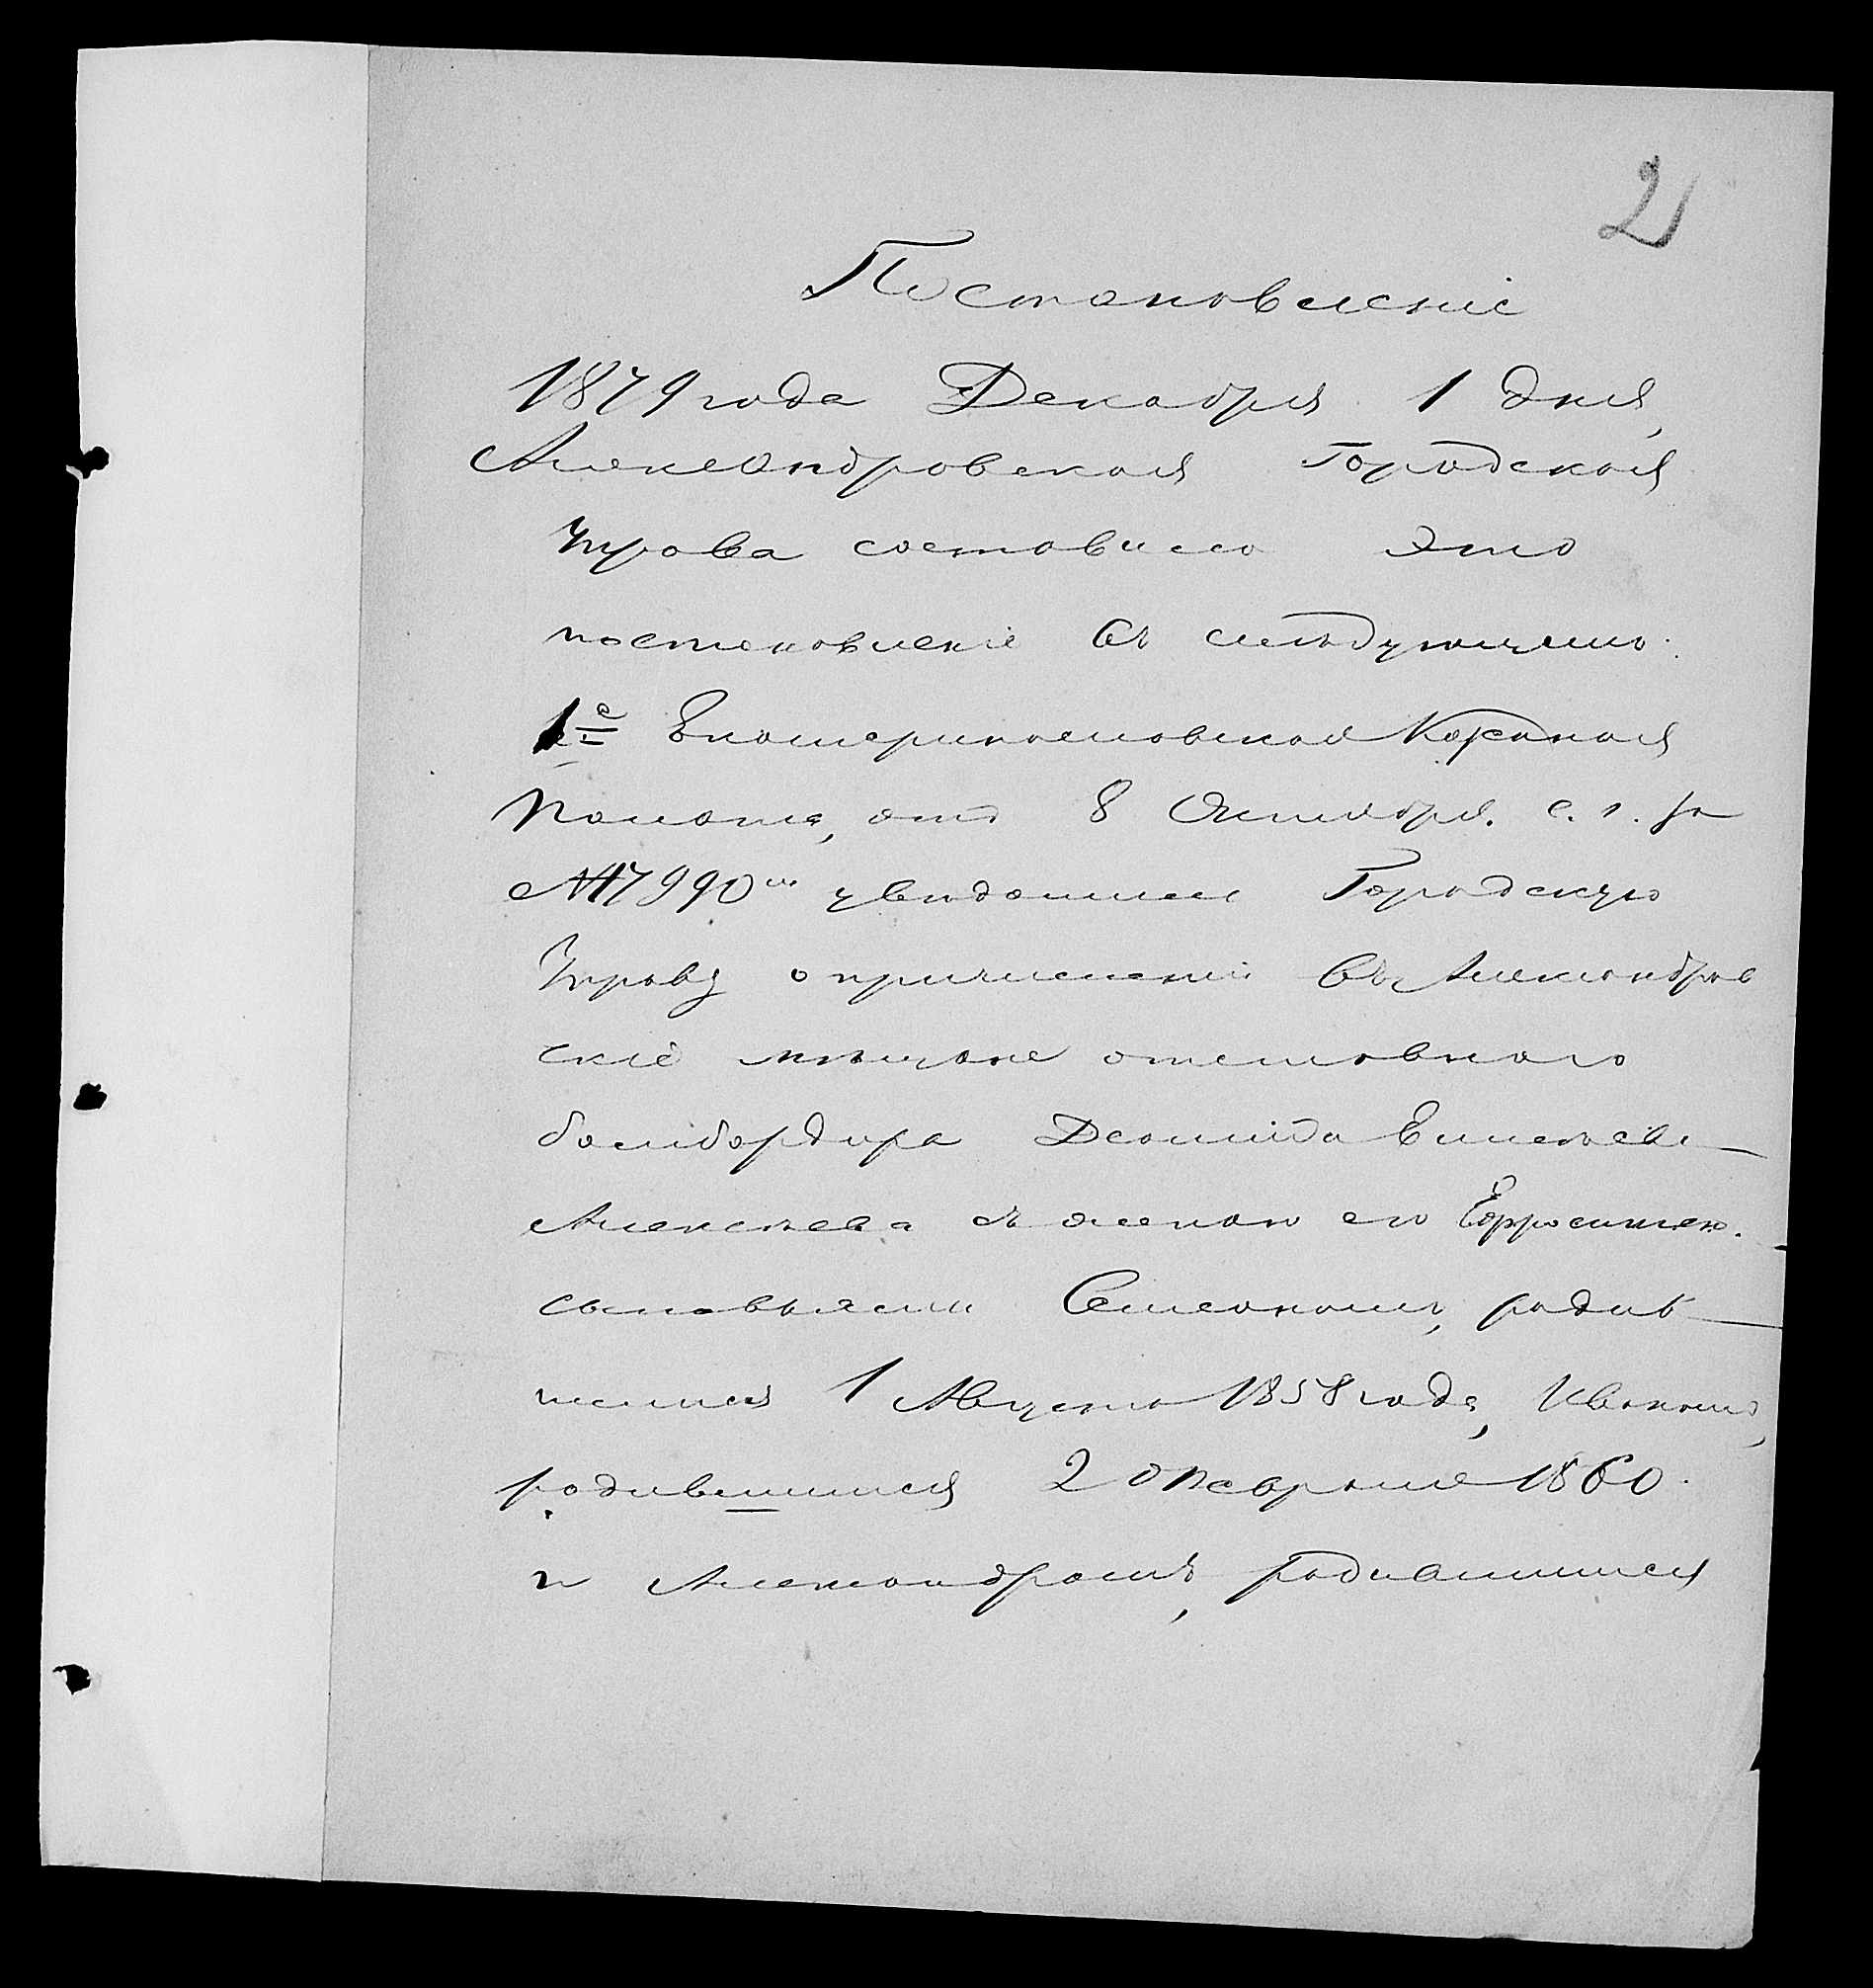 2
Постановленіе
1879 года Декабря 1 дня,
Александровская Городская
Управа составила это
постановленіе въ слѣдующемъ:
1е Екатеринославская Казенная
Палата, отъ 8 Октября с. г. за
№ 7990мъ увѣдомила Городскую
Управу о причисленіи въ Александров
скіе мѣщане отставного
бомбардира Деомида Елисѣева
Алексѣева съ женою его Ефросиніею.
сыновьями Семеномъ, родив
шимся 1 Августа 1858 года, Иваномъ,
родившимся 20 Февраля 1860
и Александромъ, родившимся